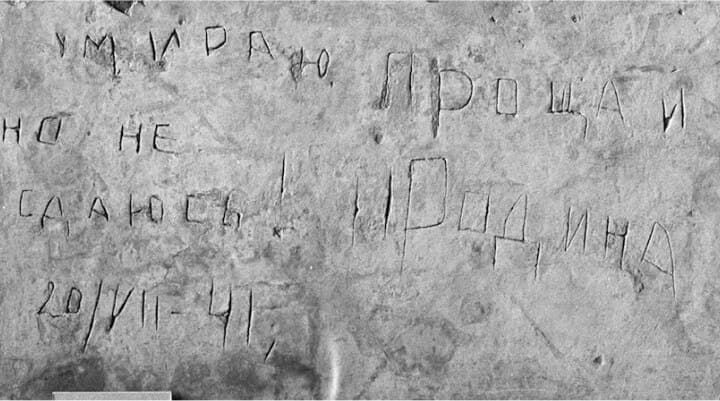 УМИРАЮ
НО НЕ
СДАЮСЬ!
20/VII-41
ПРОЩАЙ
РОДИНА